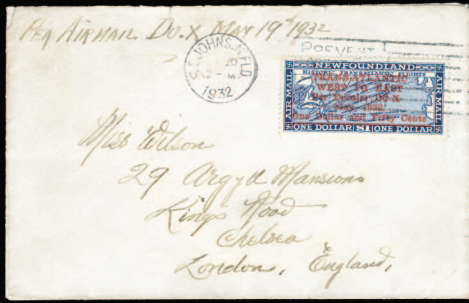 Per Airmail Do.X May 19th 1932
ST. JOHN'S. NFLD
1932
PREVENT
NEWFOUNDLAND
HISTORIC TRANSATLANTIC FLIGHTS
AIR MAIL
AIR MAIL
TRANS-ATLANTIC
WEST TO EAST
Per Dornier DO-X
May, 1932.
One Dollar and Fifty Cents
ONE DOLLAR $1 ONE DOLLAR
Miss Wilson
29 Argyll Mansions
Kings Road
Chelsea
London, England,